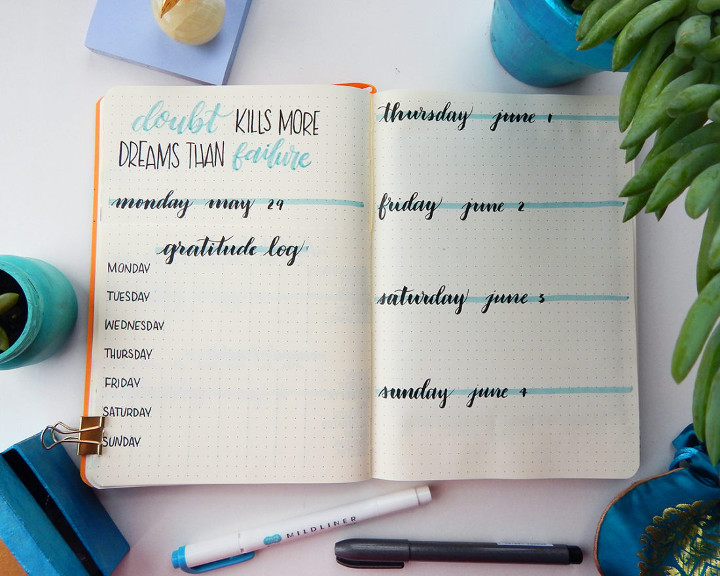 doubt KILLS MORE
DREAMS THAN failure
monday may 29
gratitude log
MONDAY
TUESDAY
WEDNESDAY
THURSDAY
FRIDAY
SATURDAY
SUNDAY
thursday june 1
friday june 2
saturday june 3
sunday june 4
MILDLINER